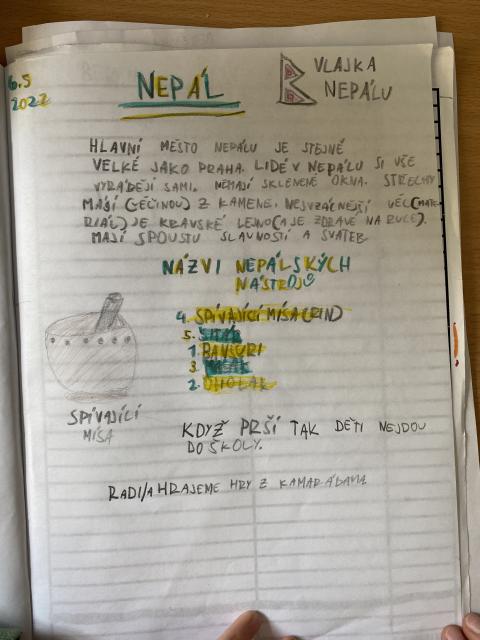 6.5
2022
NEPÁL
VLAJKA
NEPÁLU
HLAVNÍ MĚSTO NEPÁLU JE STEJNĚ
VELKÉ JAKO PRAHA. LIDÉ V NEPÁLU SI VŠE
VYRÁBĚJÍ SAMI. NEMAJÍ SKLENĚNÉ OKNA. STŘECHY
MAJÍ (VĚČINOU) Z KAMENE. NEJVZÁCNĚJŠÍ VĚC(MAT
RIÁL) JE KRAVSKÉ LEJNO(A JE ZDRAVÉ NA RUCE).
MAJÍ SPOUSTU SLAVNOSTÍ A SVATEB
NÁZVI NEPÁLSKÝCH
NÁSTROJŮ
4. SPÍVAJÍCÍ MÍSA(RIN)
5.
1. BANSURI
3.
2. DHOLAK
SPÍVAJÍCÍ
MÍSA
KDYŽ PRŠÍ TAK DĚTI NEJDOU
DO ŠKOLY.
RADI/A HRAJEME HRY Z KAMARÁDAMA